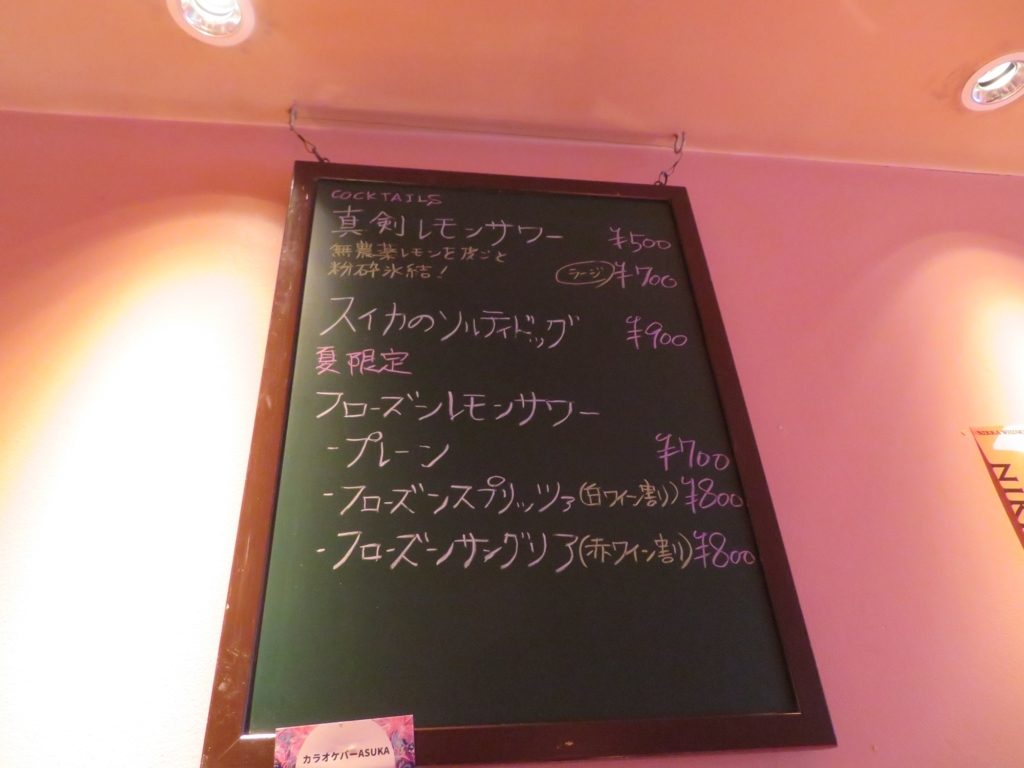 COCKTAILS
真剣レモンサワー ¥500
無農薬レモンを皮ごと
粉砕氷結! ラージ ¥700
スイカのソルティドッグ ¥900
夏限定
フローズンレモンサワー
-プレーン ¥700
-フローズンスプリッツァ(白ワイン割り) ¥800
-フローズンサングリア(赤ワイン割り) ¥800
カラオケバーASUKA